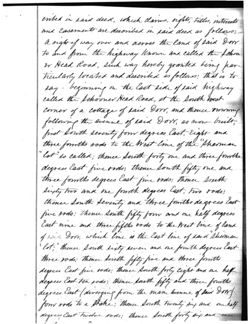 cribed in said deed, which claims, right, titles, interests
and easements are described in said deed as follows:
A right of way over and across the land of said Dorr
to and from the highway known and called the
or Head Road, said way hereby granted being par-
ticularly located and described as follows; that is to
say - beginning in the East side of said highway
called the Head Road, at the South west
corner of a cottage of said Dorr, and thence running
following the avenue of said Dorr, as now built,
first South seventy four degrees East, eight and
three fourths rods to the West line of the
Lot" so called; thence South forty one and three fourths
degrees East five rods; thence South fifty one and
three fourths degrees East five rods; thence South
sixty two and one fourth degrees East, two rods;
thence South seventy and three fourths degrees East
five rods; thence South fifty four and one half degrees
East nine and three fifths rods to the West line of land
of said Dorr, which line is the East line of said
Lot; thence South sixty seven and one fourth degrees East
three rods; thence South fifty five and three fourths
degrees East five rods; thence South forty eight and one half
degrees East six rods; thence South fifty and three fourths
degrees East, diverging from the main avenue of said Dorr,
four rods to a Stake; thence South twenty six and one half
degrees East twelve rods; thence South forty six and one